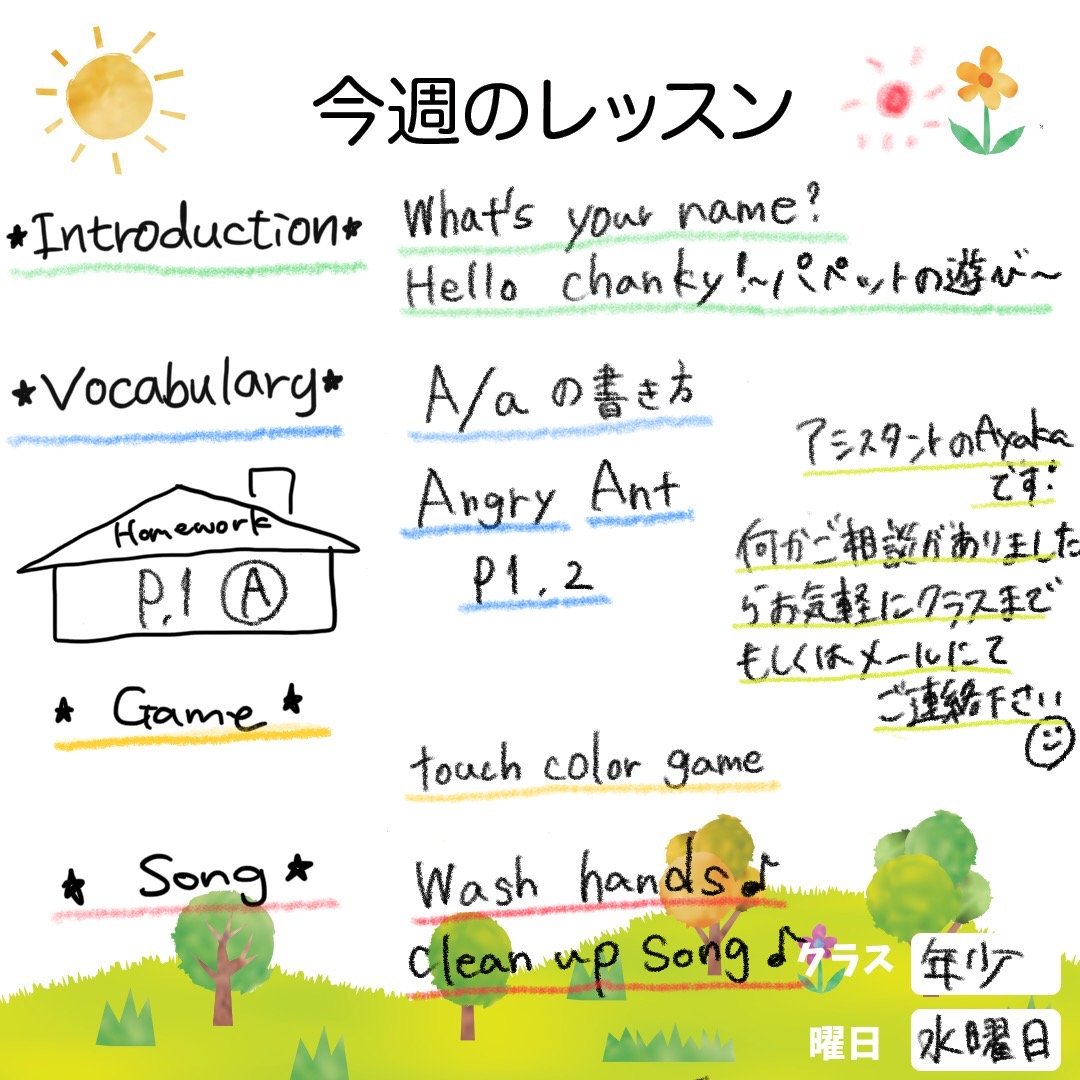 今週のレッスン
★Introduction★
What's your name?
Hello chanky!~パペットの遊び~
★Vocabulary★
A/aの書き方
Angry Ant
P1.2
Homework
P.1 Ⓐ
アシスタントのAyaka
です!
何かご相談がありました
らお気軽にクラスまで
もしくはメールにて
ご連絡下さい
★ Game ★
touch color game
★ Song ★
Wash hands♪
Clean up Song♪
クラス 年少
曜日 水曜日